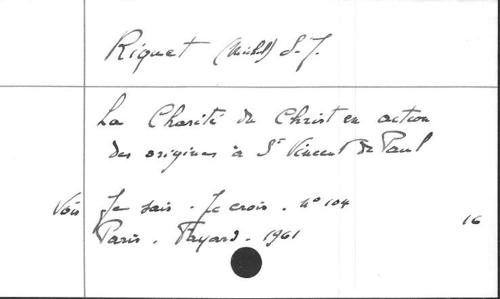 Riquet (Michel) S.J.
La Charité du Christ en action
des origines à St Vincent de Paul
Voir Je sais. Je crois. n° 104
16
Paris. Fayard. 1961